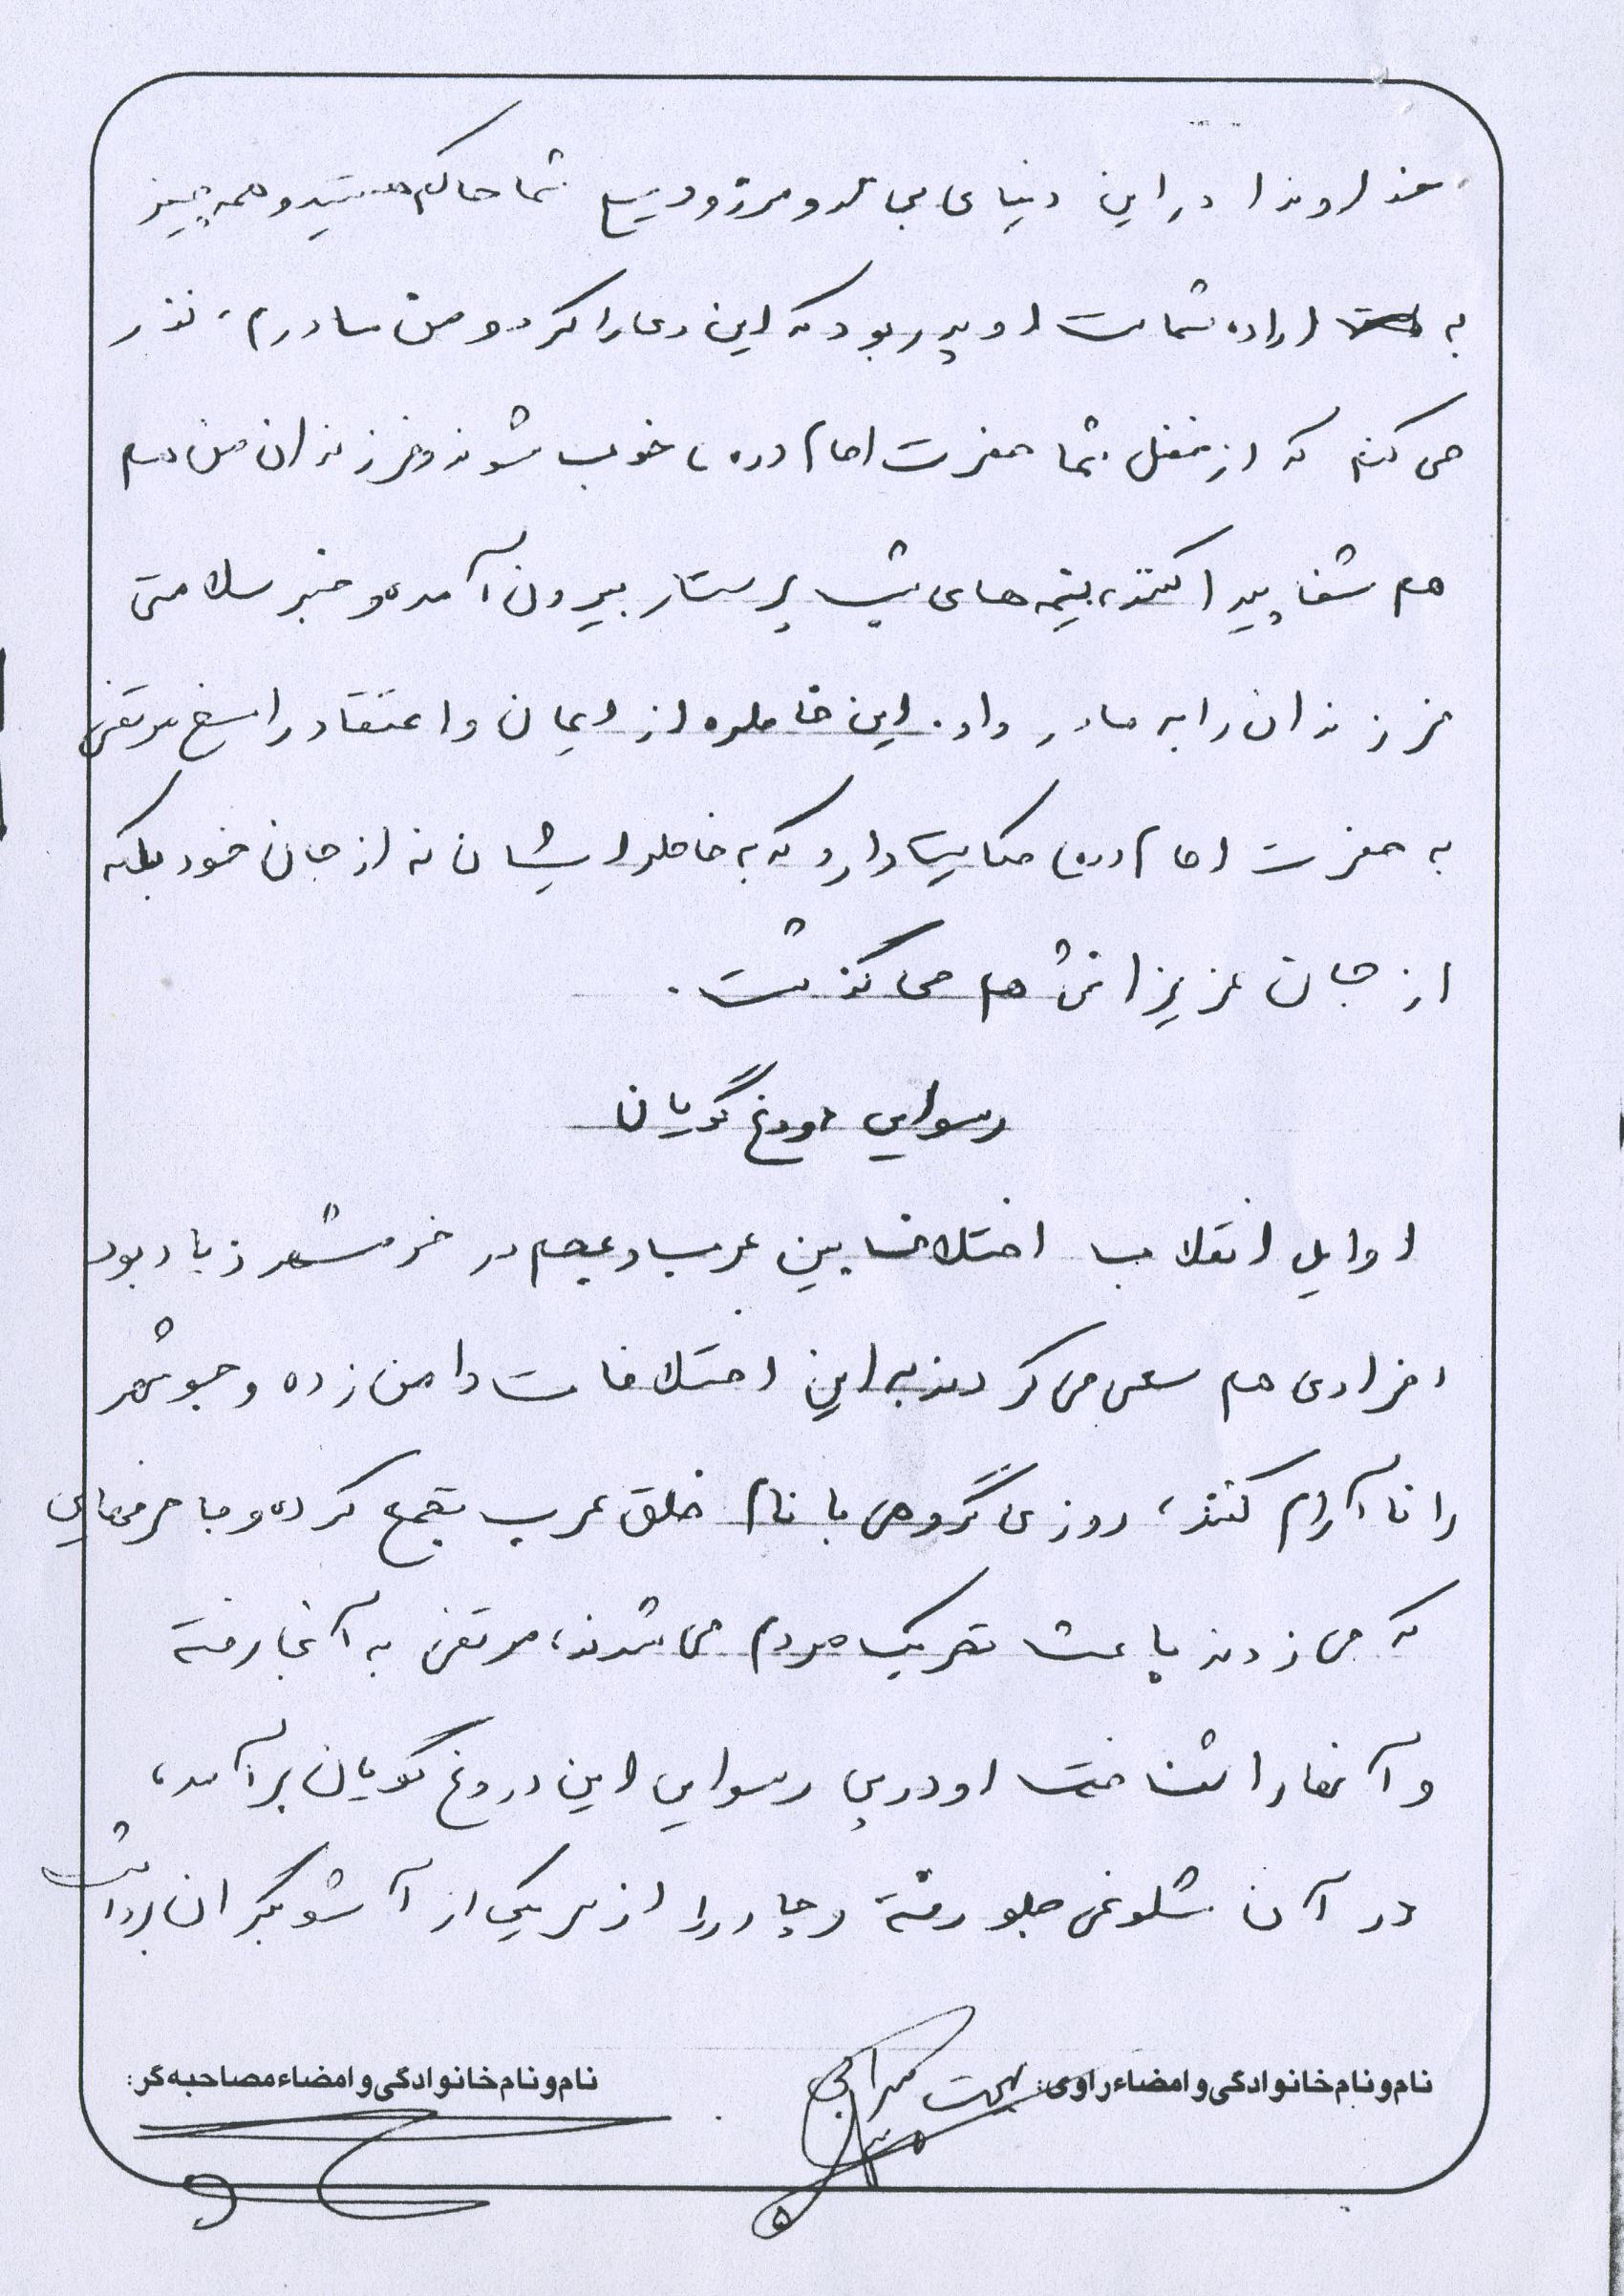 خداوندا در این دنیای بی حد و مرز و وسیع شما حاکم هستید و همه چیز
به اراده شماست او پدر بود که این دعا را کرد و من مادرم، نذر
می کنم که از فضل شما حضرت امام (ره) خوب شوند و فرزندان من هم
هم شفا پیدا کنند، نیمه های شب پرستار بیرون آمده و خبر سلامتی
فرزندان را به مادر داد. این خاطره از ایمان و اعتقاد راسخ مرتضی
به حضرت امام (ره) حکایت دارد که به خاطر ایشان نه از جان خود بلکه
از جان عزیزانش هم می گذشت.
رسوایی دروغ گویان
اوایل انقلاب اختلاف بین عرب و عجم در خرمشهر زیاد بود
افرادی هم سعی می کردند به این اختلافات دامن زده و جو شهر
را نا آرام کنند، روزی گروهی با نام خلق عرب تجمع کرده و با حرفهایی
که می زدند باعث تحریک مردم می شدند، مرتضی به آنجا رفته
و آنها را شناخت او در پی رسوایی این دروغ گویان برآمد،
در آن شلوغی جلو رفته و چادر را از سر یکی از آشوبگران برداشت
نام و نام خانوادگی و امضاء راوی: بهجت
نام و نام خانوادگی و امضاء مصاحبه گر: